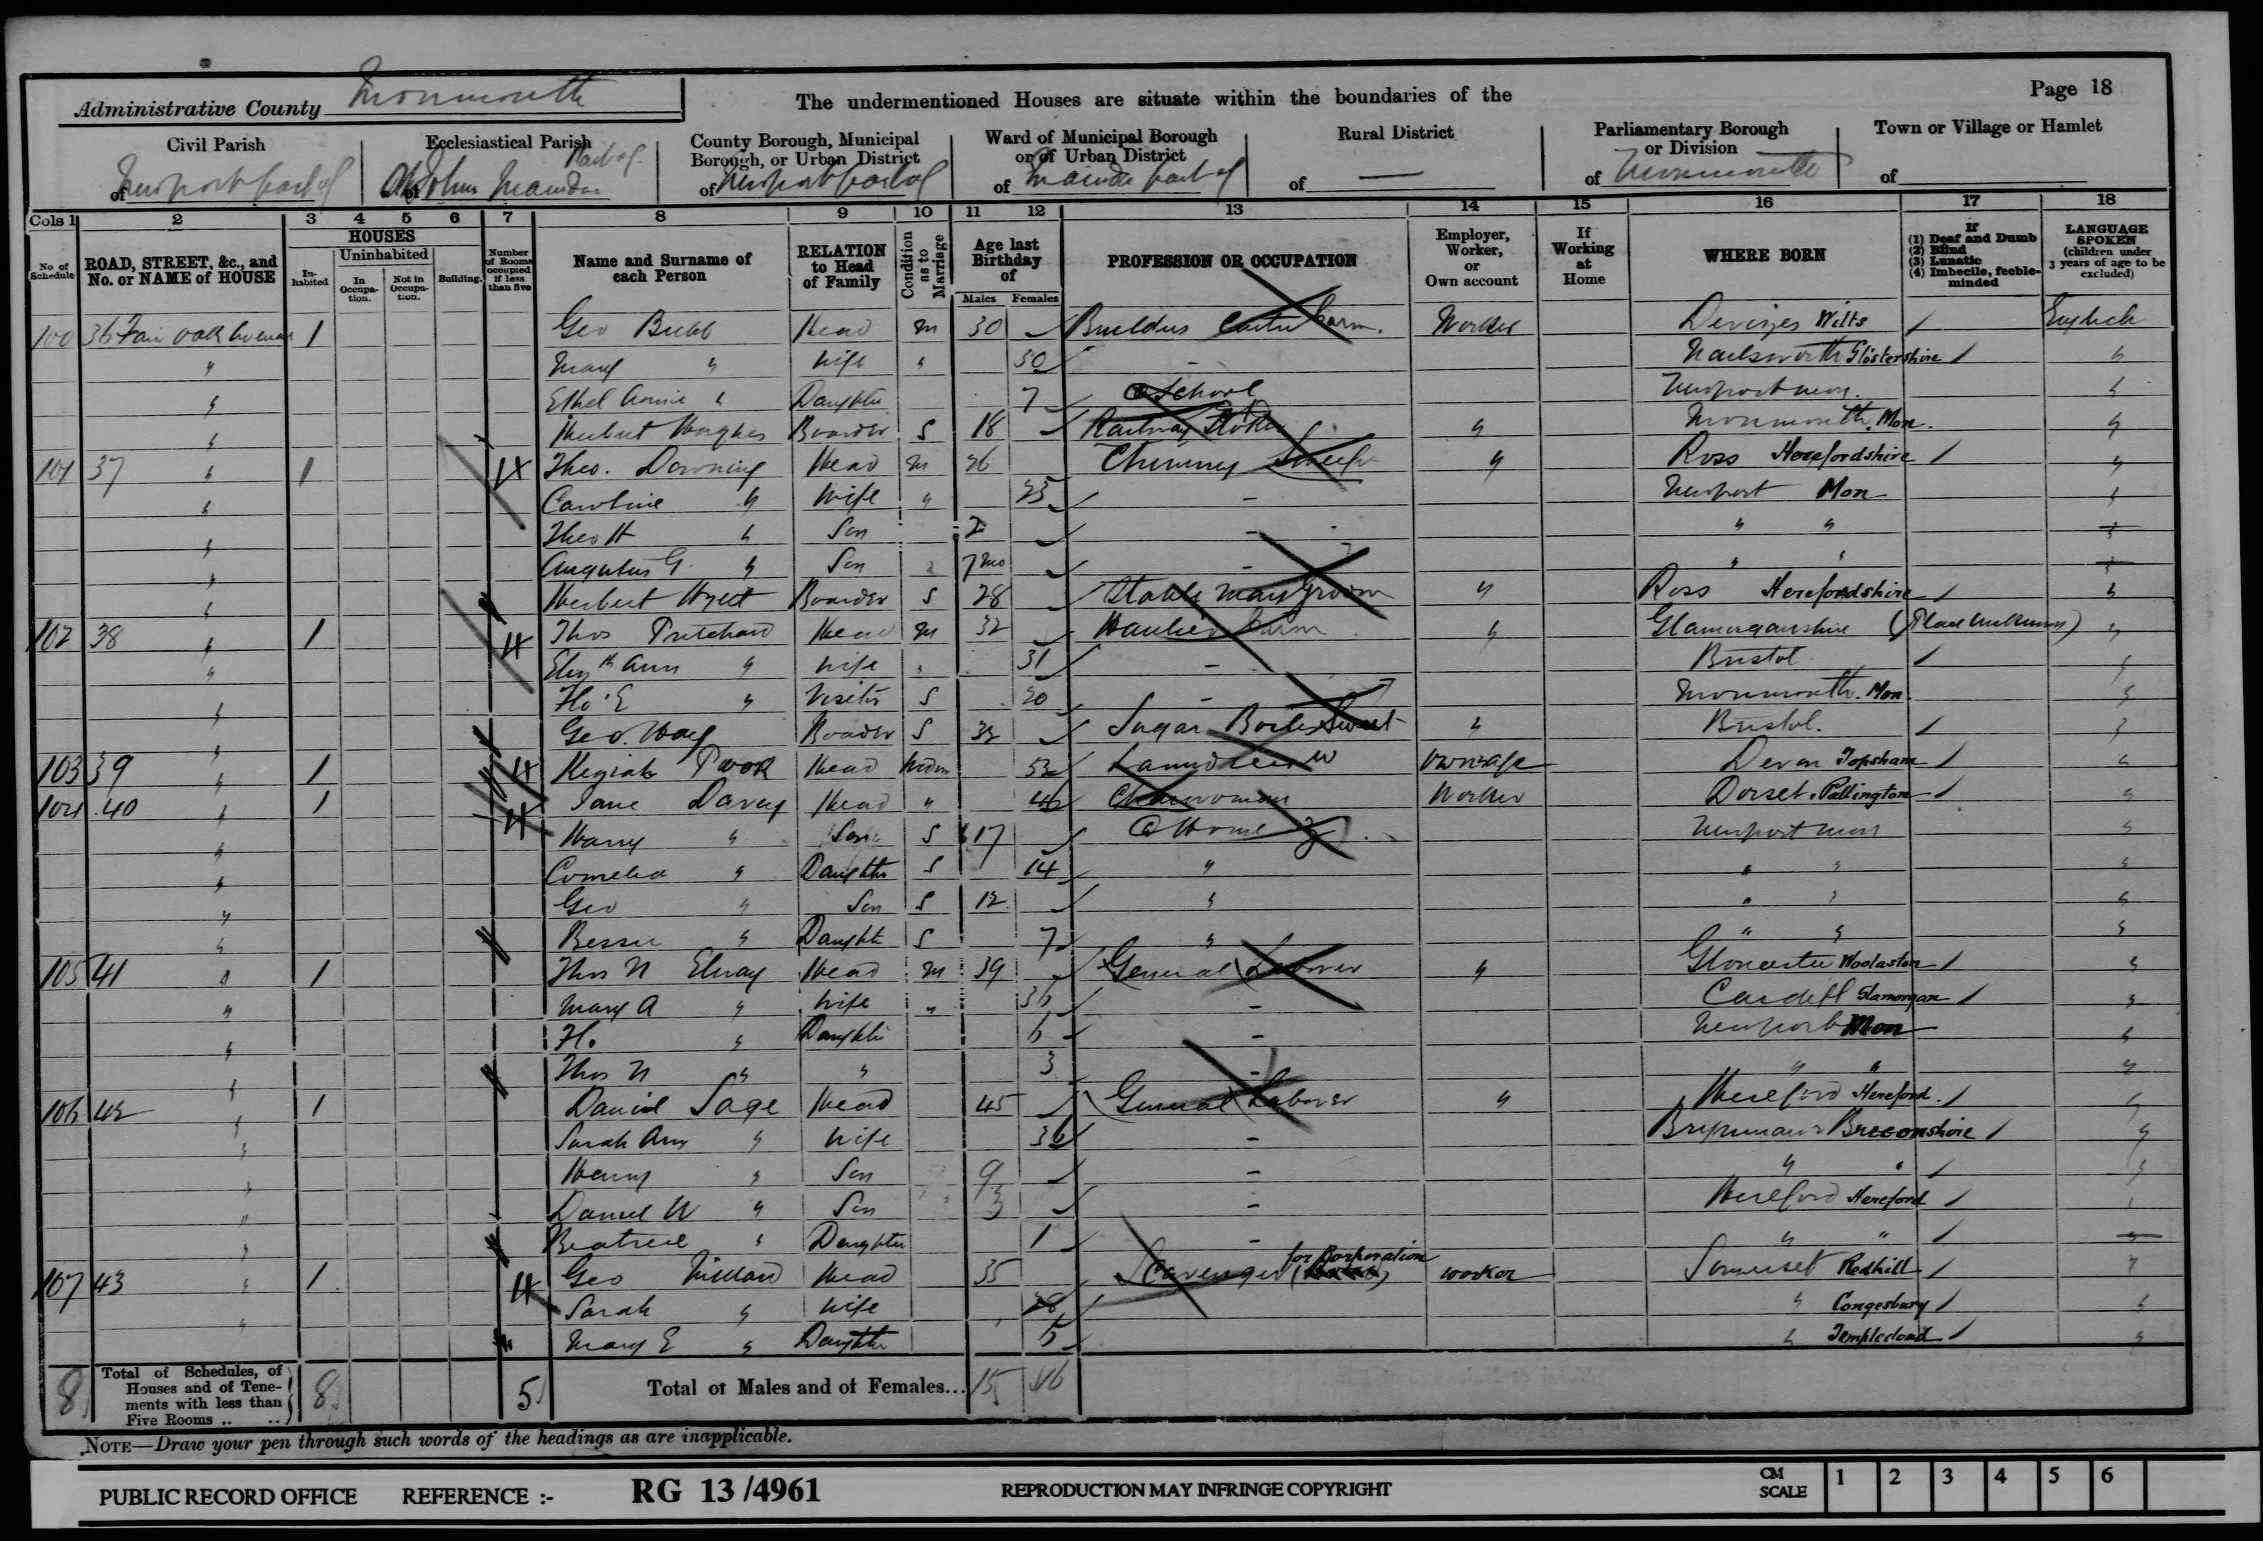 Administrative County Monmouth
The undermentioned Houses are situate within the boundaries of the
Page 18
Civil Parish
of Newport part of
Ecclesiastical Parish
of St Johns Maindee Part of
County Borough, Municipal Borough, or Urban District
of Newport part of
Ward of Municipal Borough or of Urban District
of Maindee part of
Rural District
of —
Parliamentary Borough or Division
of Monmouth
Town or Village or Hamlet
of
Cols 1 2 3 4 5 6 7 8 9 10 11 12 13 14 15 16 17 18
No of Schedule
ROAD, STREET, &c., and No. or NAME of HOUSE
HOUSES
In-habited
Uninhabited
In Occupa-tion.
Not in Occupa-tion.
Building.
Number of Rooms occupied if less than five
Name and Surname of each Person
RELATION to Head of Family
Condition as to Marriage
Age last Birthday of
Males Females
PROFESSION OR OCCUPATION
Employer, Worker, or Own account
If Working at Home
WHERE BORN
If
(1) Deaf and Dumb
(2) Blind
(3) Lunatic
(4) Imbecile, feeble-minded
LANGUAGE SPOKEN
(children under 3 years of age to be excluded)
100 36 Fair Oak Avenue 1 Geo Bubb Head M 30 Builders Carter Worker Devizes Wilts English
" Mary " Wife " 30 - Nailsworth Glostershire "
" Ethel Annie " Daughter 7 School Newport Mon. "
" Herbert Hughes Boarder S 18 Railway Stoker " Monmouth, Mon. "
101 37 " 1 4 Theo. Downing Head M 26 Chimney Sweep " Ross Herefordshire "
" Caroline " Wife " 25 - Newport Mon "
" Theo H " Son 2 - " "
" Augutus G. " Son 7mo - " "
" Herbert Boarder S 28 Stable man groom " Ross Herefordshire "
102 38 " 1 4 Thos Pritchard Head M 32 Haulier " Glamorganshire (Place Unknown) "
" Elizth Ann " Wife " 31 - Bristol "
" Flo. E " Visitor S 20 - Monmouth. Mon. "
" Geo. Boader S 32 Sugar Boiler Sweet " Bristol. "
103 39 " 1 4 Keziah Head Widw 52 Laundress W Own a/c Devon Topsham "
104 40 " 1 4 Jane Davey Head " 46 Charwoman Worker Dorset. Pallington "
" Harry " Son S 17 At Home Newport Mon "
" Cornelia " Daughter S 14 " " " "
" Geo " Son S 12 " " " "
" Bessie " Daughter S 7 " " " "
105 41 " 1 Thos N Elway Head M 39 General Laborer " Gloucester Woolaston "
" Mary A " Wife " 36 - Cardiff Glamorgan "
" Flo. " Daughter 6 - Newport Mon "
" Thos N " " 3 - " " "
106 42 " 1 Daniel Sage Head 45 General Laborer " Hereford Hereford. "
" Sarah Ann " Wife 36 - Brynmawr Breconshire "
" Henry " Son 9 - " " "
" Daniel W " Son 3 - Hereford Hereford "
" Beatrice " Daughter 1 - " "
107 43 " 1 4 Geo Millard Head 35 Scavenger for Corporation worker Somerset Redhill "
" Sarah " Wife 28 " Congesbury "
Mary E " Daughter 5 " Templecloud "
8 Total of Schedules, of Houses and of Tene-ments with less than Five Rooms .. .. 8 5 Total of Males and of Females... 15 16
NOTE—Draw your pen through such words of the headings as are inapplicable.
PUBLIC RECORD OFFICE REFERENCE :- RG 13/4961 REPRODUCTION MAY INFRINGE COPYRIGHT CM SCALE 1 2 3 4 5 6